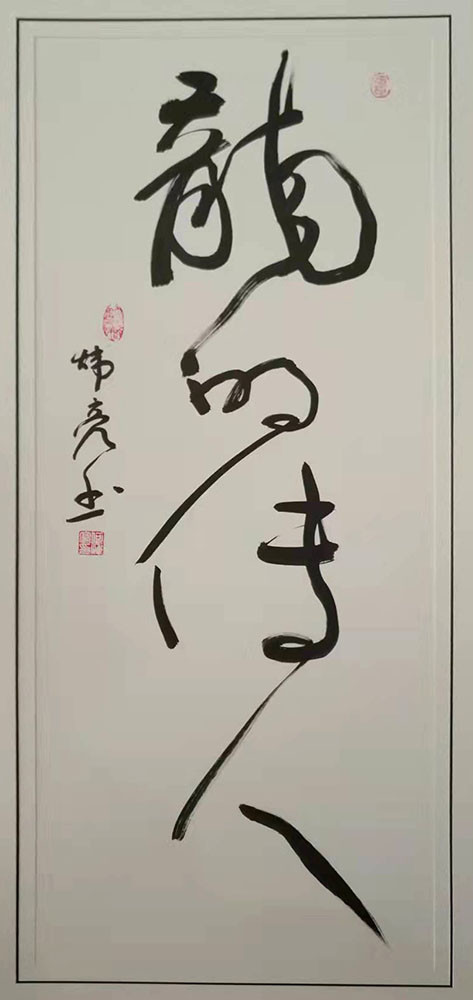 龍的傳人
炜亮书